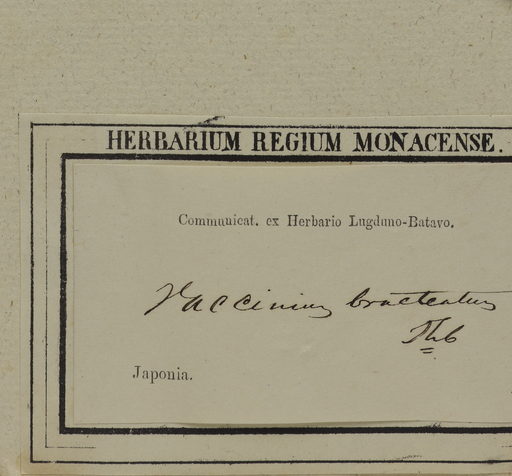 HERBARIUM REGIUM MONACENSE.
Communicat. ex Herbario Lugduno-Batavo.
Vaccinium bracteatum
Thb
Japonia.